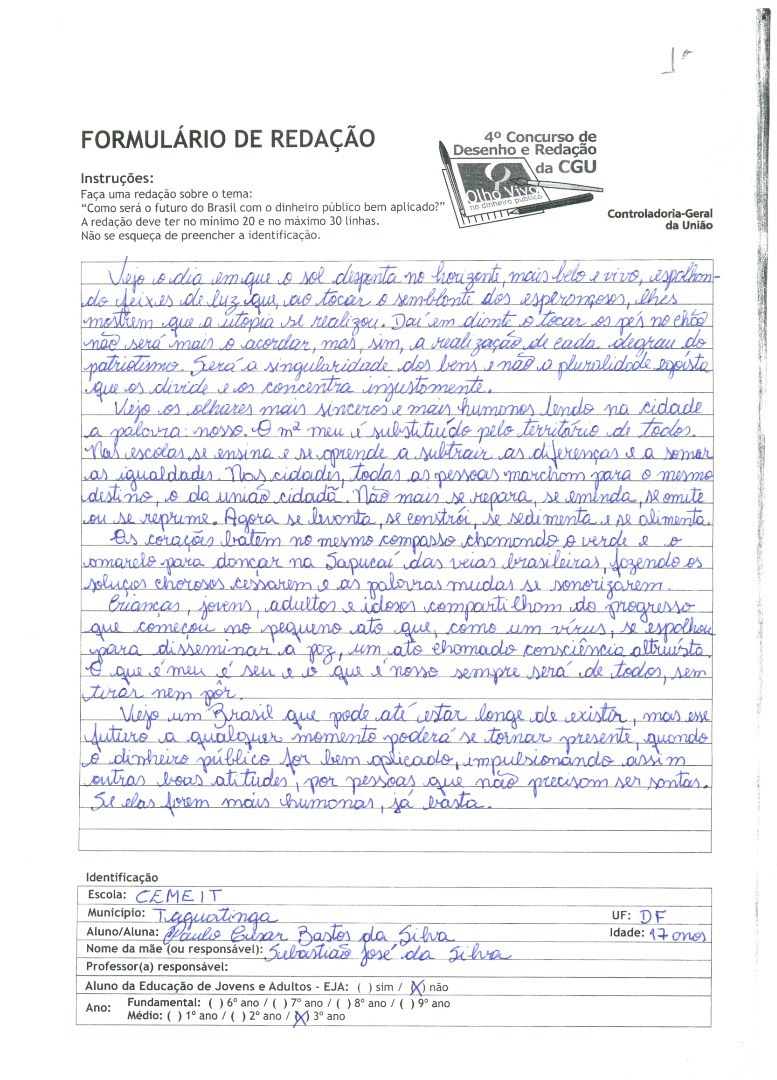 1º
FORMULÁRIO DE REDAÇÃO
4º Concurso de
Desenho e Redação
da CGU
Olho Vivo
no dinheiro público
Controladoria-Geral
da União
Instruções:
Faça uma redação sobre o tema:
“Como será o futuro do Brasil com o dinheiro público bem aplicado?”
A redação deve ter no mínimo 20 e no máximo 30 linhas.
Não se esqueça de preencher a identificação.
Vejo o dia em que o sol desponta no horizonte, mais belo e vivo, espalhan-
do feixes de luz que, ao tocar o semblante dos esperançosos, lhes
mostrem que a utopia se realizou. Daí em diante o tocar os pés no chão
não será mais o acordar, mas, sim, a realização de cada degrau do
patriotismo. Será a singularidade dos bens e não a pluralidade egoísta
que os divide e os concentra injustamente.
Vejo os olhares mais sinceros e mais humanos lendo na cidade
a palavra: nosso. O m² meu é substituído pelo território de todos.
Nas escolas se ensina e se aprende a subtrair as diferenças e a somar
as igualdades. Nas cidades, todas as pessoas marcham para o mesmo
destino, o da união cidadã. Não mais se repara, se emenda, se omite
ou se reprime. Agora se levanta, se constrói, se sedimenta e se alimenta.
Os corações batem no mesmo compasso chamando o verde e o
amarelo para dançar na Sapucaí das veias brasileiras, fazendo os
soluços chorosos cessarem e as palavras mudas se sonorizarem.
Crianças, jovens, adultos e idosos compartilham do progresso
que começou no pequeno ato que, como um vírus, se espalhou
para disseminar a paz, um ato chamado consciência altruísta.
O que é meu é seu e o que é nosso sempre será de todos, sem
tirar nem pôr.
Vejo um Brasil que pode até estar longe de existir, mas esse
futuro a qualquer momento poderá se tornar presente, quando
o dinheiro público for bem aplicado, impulsionando assim
outras boas atitudes, por pessoas que não precisam ser santas.
Se elas forem mais humanas, já basta.
Identificação
Escola: CEMEIT
Município: Taguatinga UF: DF
Aluno/Aluna: Paulo César Bastos da Silva Idade: 17 anos
Nome da mãe (ou responsável): Sebastião José da Silva
Professor(a) responsável:
Aluno da Educação de Jovens e Adultos - EJA: ( ) sim / (X) não
Ano: Fundamental: ( ) 6º ano / ( ) 7º ano / ( ) 8º ano / ( ) 9º ano
Médio: ( ) 1º ano / ( ) 2º ano / (X) 3º ano